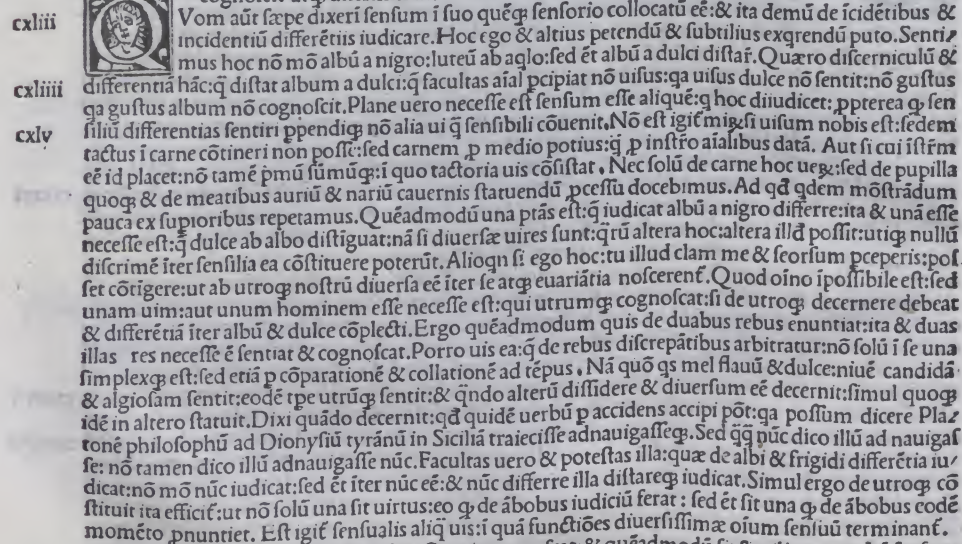 cxliii
QVom aūt sæpe dixeri sensum ī suo quēqȝ sensorio collocatū eē:& ita demū de īcidētibus &
incidentiū differētiis iudicare.Hoc ego & altius petendū & subtilius exqrendū puto.Senti/
mus hoc nō mō albū a nigro:luteū ab aqlo:sed ēt albū a dulci distar̄.Quæro discerniculū &
cxliiii
differentiā hāc:q̄ distat album a dulci:q̄ facultas aīal pcipiat nō uisus:qa uisus dulce nō sentit:nō gustus
qa gustus album nō cognoscit.Plane uero necesse est sensum esse aliquē:q hoc diiudicet:ppterea q sen
cxlv
siliū differentias sentiri ppendiqȝ nō alia ui q̄ sensibili cōuenit.Nō est igit̄ si uisum nobis est:sedem
tactus ī carne cōtineri non posse:sed carnem p medio potius:q̄ p instro aīalibus datā. Aut si cui īstr̄m
eē id placet:nō tamē pmū sūmūqȝ:ī quo tactoria uis cōsistat. Nec solū de carne hoc :sed de pupilla
quoqȝ & de meatibus auriū & nariū cauernis statuendū pcessu docebimus.Ad qd qdem mōstrādum
pauca ex supioribus repetamus.Quēadmodū una ptās est:q̄ iudicat albū a nigro differre:ita & unā esse
necesse est:q̄ dulce ab albo distiguat:nā si diuersæ uires sunt:qrū altera hoc:altera illd possit:utiqȝ nullū
discrimē īter sensilia ea cōstituere poterūt.Alioqn si ego hoc:tu illud clam me & seorsum pceperis:pos
set cōtigere:ut ab utroqȝ nostrū diuersa eē īter se atqȝ euariātia noscerent̄.Quod oīno īpossibile est:sed
unam uim:aut unum hominem esse necesse est:qui utrumqȝ cognoscat:si de utroqȝ decernere debeat
& differētiā īter albū & dulce cōplecti.Ergo quēadmodum quis de duabus rebus enuntiat:ita & duas
illas res necesse ē sentiat & cognoscat.Porro uis ea:q̄ de rebus discrepātibus arbitratur:nō solū ī se una
simplexqȝ est:sed etiā p cōparationē & collationē ad tēpus. Nā quō qs mel flauū &dulce:niuē candidā
& algiosam sentit:eodē tpe utrūqȝ sentit:& qndo alterū dissidere & diuersum eē decernit:simul quoqȝ
idē in altero statuit.Dixi quādo decernit:qd quidē uerbū p accidens accipi pōt:qa possum dicere Pla/
tonē philosophū ad Dionysiū tyrānū in Siciliā traiecisse adnauigasseqȝ.Sed q̄q̄ nūc dico illū ad nauigas
se: nō tamen dico illū adnauigasse nūc.Facultas uero & potestas illa:quæ de albi & frigidi differētia iu/
dicat:nō mō nūc iudicat:sed ēt īter nūc eē:& nūc differre illa distareqȝ iudicat.Simul ergo de utroqȝ cō
stituit ita efficit̄:ut nō solū una sit uirtus:eo q de ābobus iudiciū ferat : sed ēt sit una q de ābobus eodē
momēto pnuntiet. Est igit̄ sensualis aliq uis:ī quā functiōes diuersissimæ oīum sensuū terminant̄.